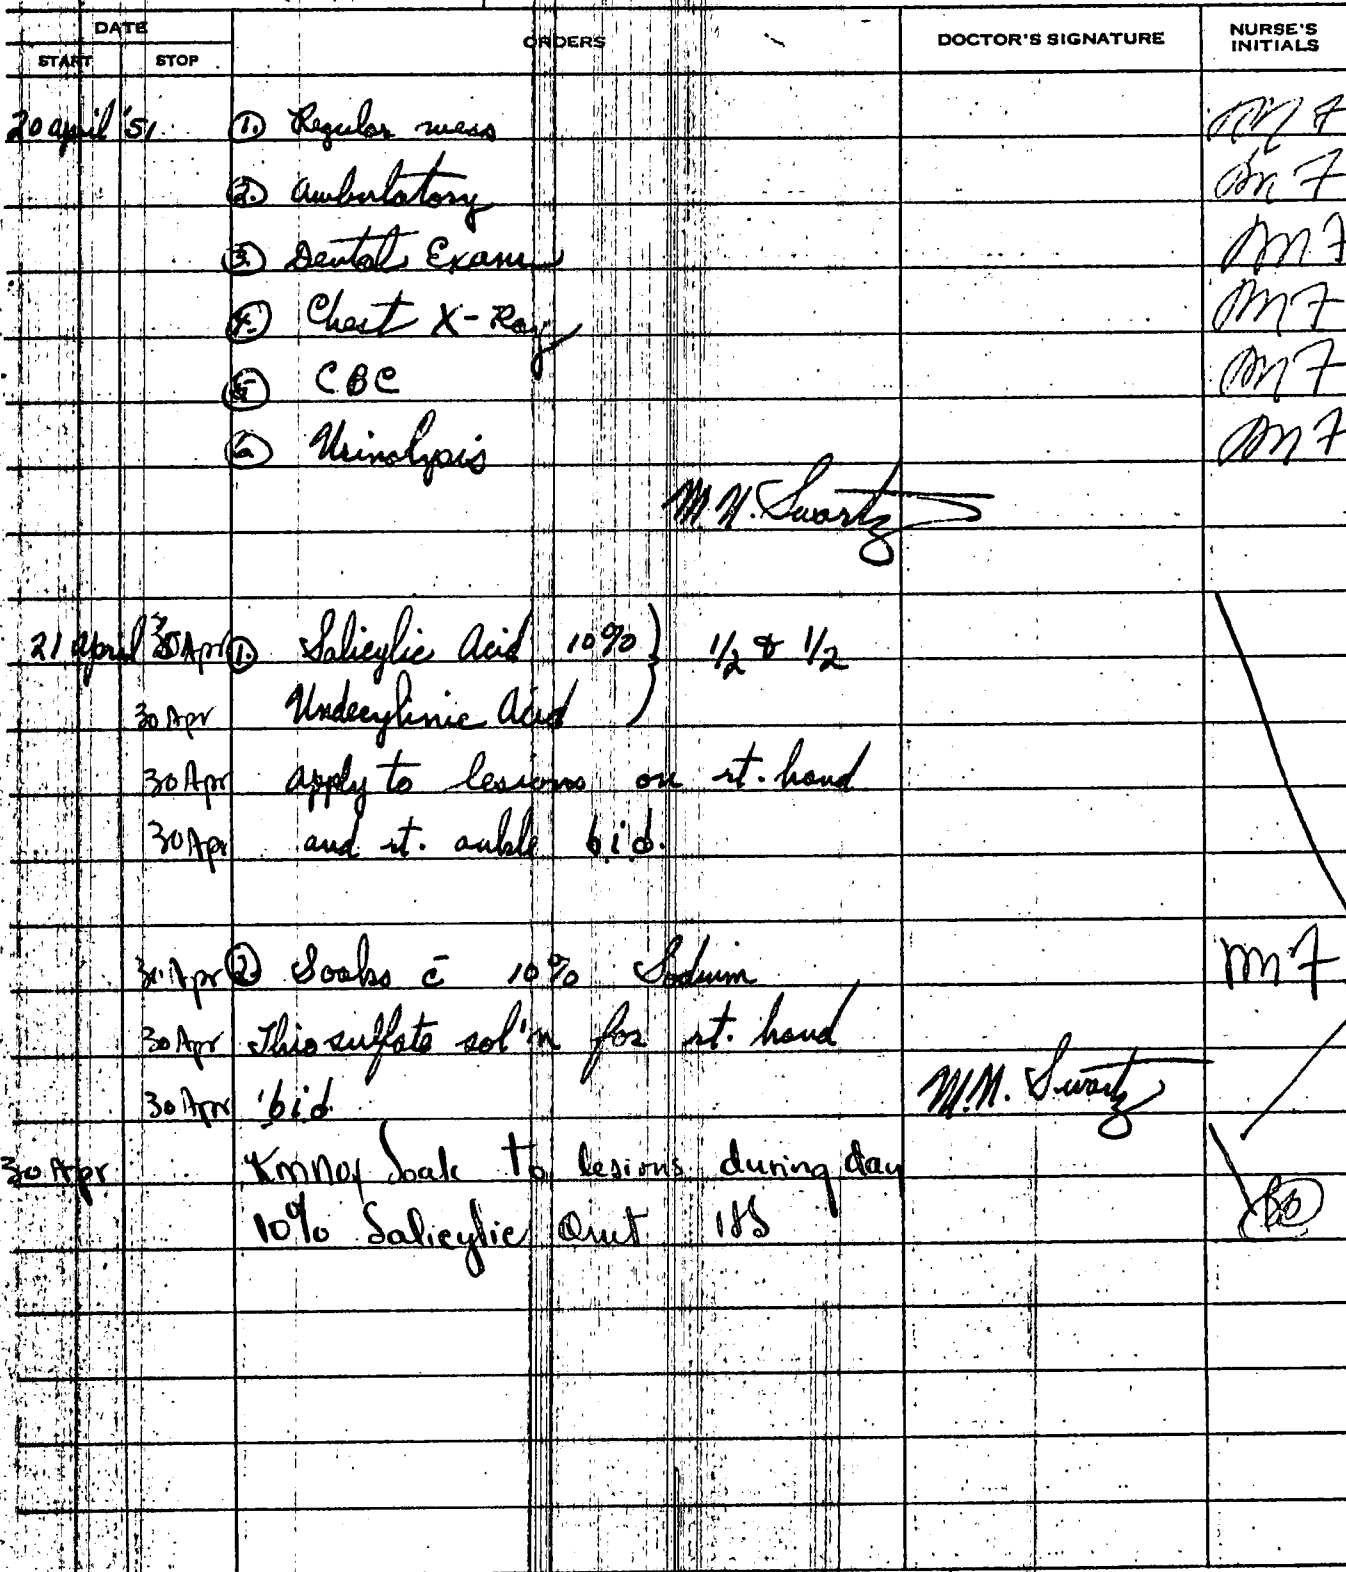 DATE
ORDERS
DOCTOR'S SIGNATURE
NURSE'S INITIALS
START STOP
20 april '51 1. Regular mess MF
2. Ambulatory MF
3. Dental Exam MF
4. Chest X-Ray MF
5 CBC MF
6 Urinalysis MF
M. N. Swartz
21 April 30 Apr 1. Salicylic Acid 10% } 1/2 & 1/2
30 Apr Undecylinic Acid
30 Apr apply to lesions on rt. hand
30 Apr and rt. ankle b.i.d.
30 Apr 2. Soaks c̄ 10% Sodium MF
30 Apr Thiosulfate sol'n for rt. hand
30 Apr bid M.N. Swartz
30 Apr KMNO4 Soak To lesions during day
10% Salicylic Oint HS